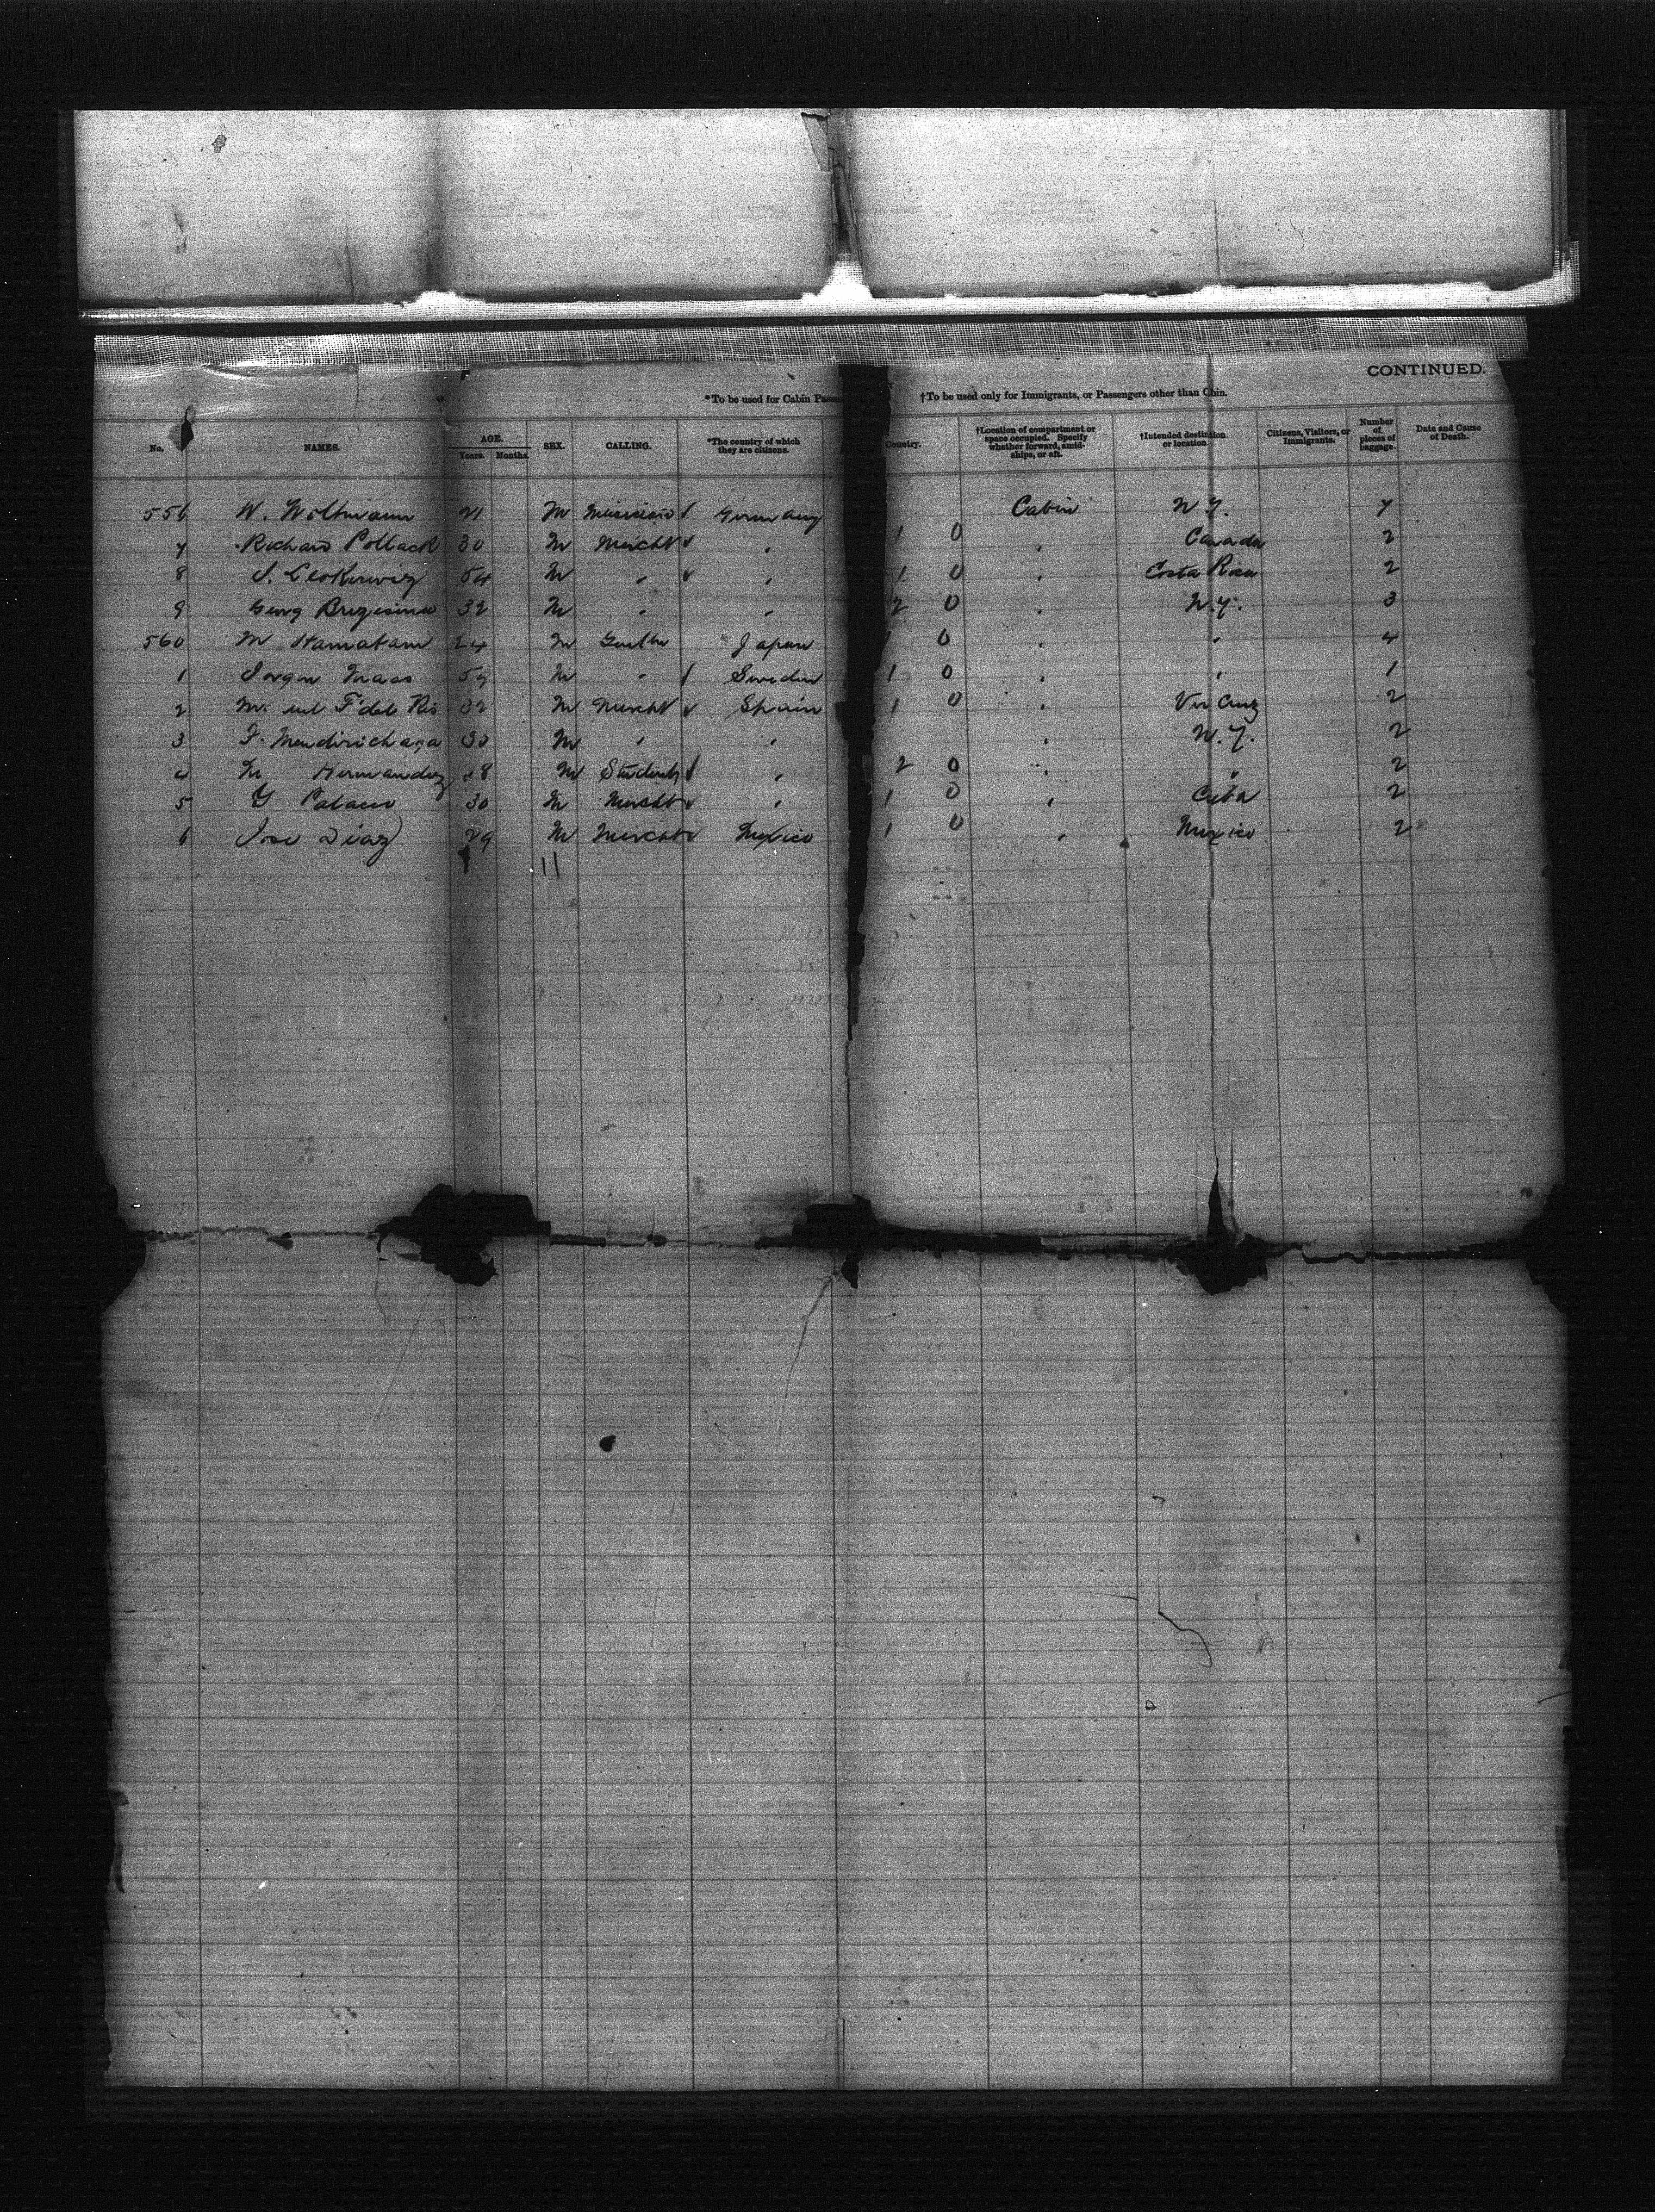 CONTINUED.
*To be used for Cabin Passen †To be used only for Immigrants, or Passengers other than Cabin.
No. NAMES. AGE. Years. Months. SEX. CALLING. *The country of which they are citizens. Country. †Location of compartment or space occupied. Specify whether forward, amidships, or aft. †Intended destination or location. Citizens, Visitors, or Immigrants. Number of pieces of baggage. Date and Cause of Death.
556 W. 21 M Musician Germany Cabin N.Y. 7
7 Richard Pollack 30 M Mercht " 1 0 " Canada 2
8 54 M " " 1 0 " Costa Rica 2
9 32 M " " 2 0 " N.Y. 3
560 M 24 M Japan 1 0 " " 4
1 59 M " Sweden 1 0 " " 1
2 32 M Mercht Spain 1 0 " Vera Cruz 2
3 F. Mendirichaga 30 M " " " N.Y. 2
4 M Hernandez 18 M Student " 2 0 " " 2
5 30 M Mercht " 1 0 " Cuba 2
6 Jose Diaz 29 M Mercht Mexico 1 0 " Mexico 2
11